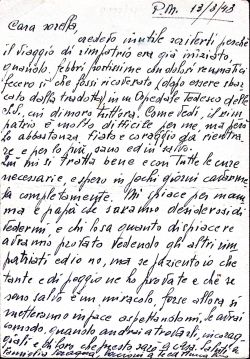 P.M. 13/3/43
Cara sorella
credevo inutile scriverti perché
il viaggio di rimpatrio era già iniziato,
quando, febbri fortissime con dolori reumatici
fecero sì che fossi ricoverato, dopo essere sbar
cato dalla tradotta, in un Ospedale Tedesco della
cui dimoro tuttora. Come vedi, il rim
patrio è molto difficile per me, ma però
ho abbastanza fiato e coraggio da rientra
re e per lo più, sano ed in salvo.
Qui mi si tratta bene e con tutte le cure
necessarie, e spero in pochi giorni cavarme
la completamente. Mi spiace per mam
ma e papà che saranno desiderosi di
vedermi, e chi losa quanto dispiacere
avranno provato vedendo gli altri rim
patriati ed io no, ma se pazienti che
tante e di peggio ne ho provate e che se
sono salvo è un miracolo, forse allora si
metteranno in pace aspettandomi, tu avrai
comodo, quando andrai a trovarli, incorag
giali e di loro che presto sarò a casa.